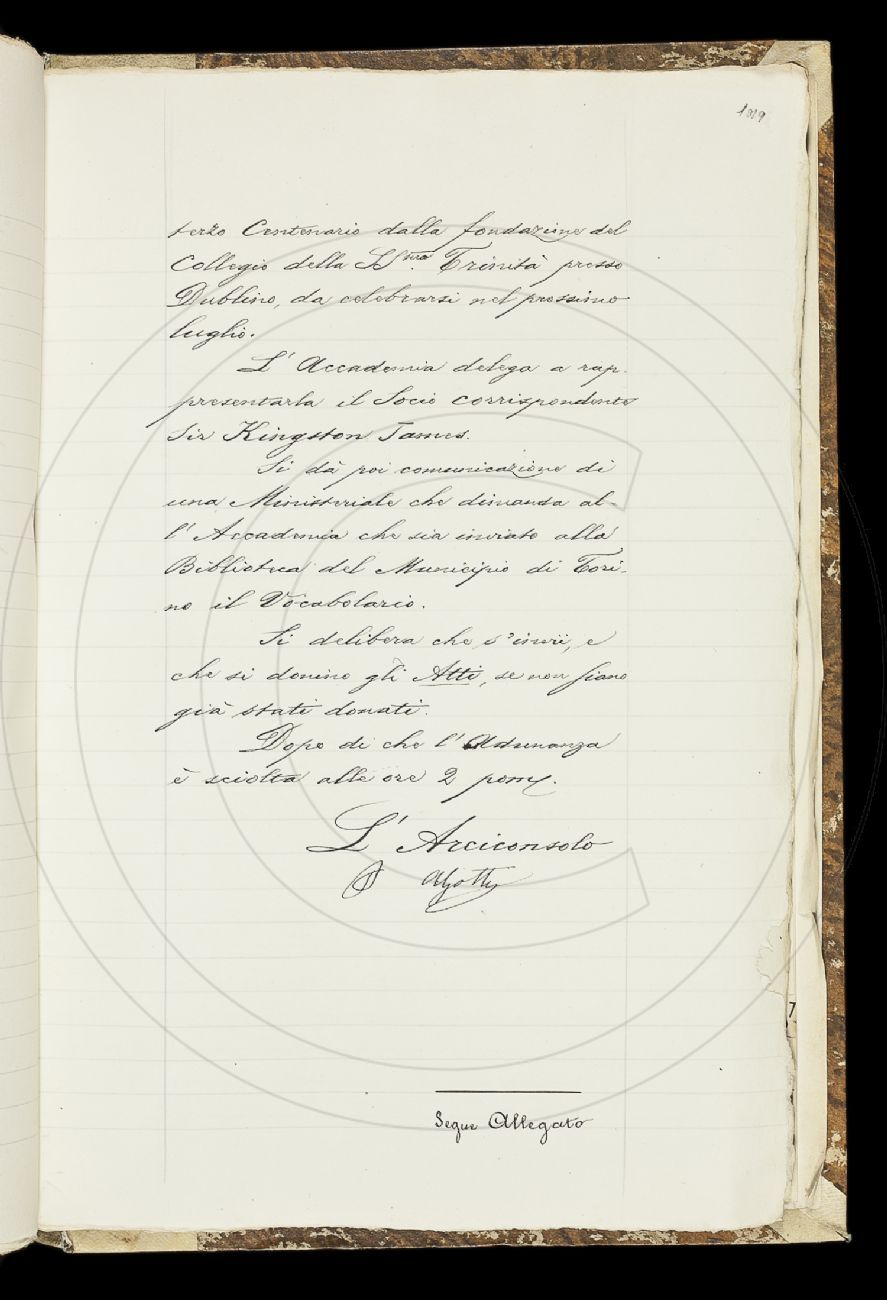 terzo Centenario dalla fondazione del
Collegio della SS.ma Trinità presso
Dublino, da celebrarsi nel prossimo
luglio.
L' Accademia delega a rap-
presentarla il Socio corrispondente
Sir Kingston James.
Si dà poi comunicazione di
una Ministeriale che dimanda al-
l' Accademia che sia inviato alla
Biblioteca del Municipio di Tori-
no il Vocabolario.
Si delibera che s'invii, e
che si donino gli Atti, se non siano
già stati donati.
Dopo di che l' Adunanza
è sciolta alle ore 2 pom.
L' Arciconsolo
Segue Allegato